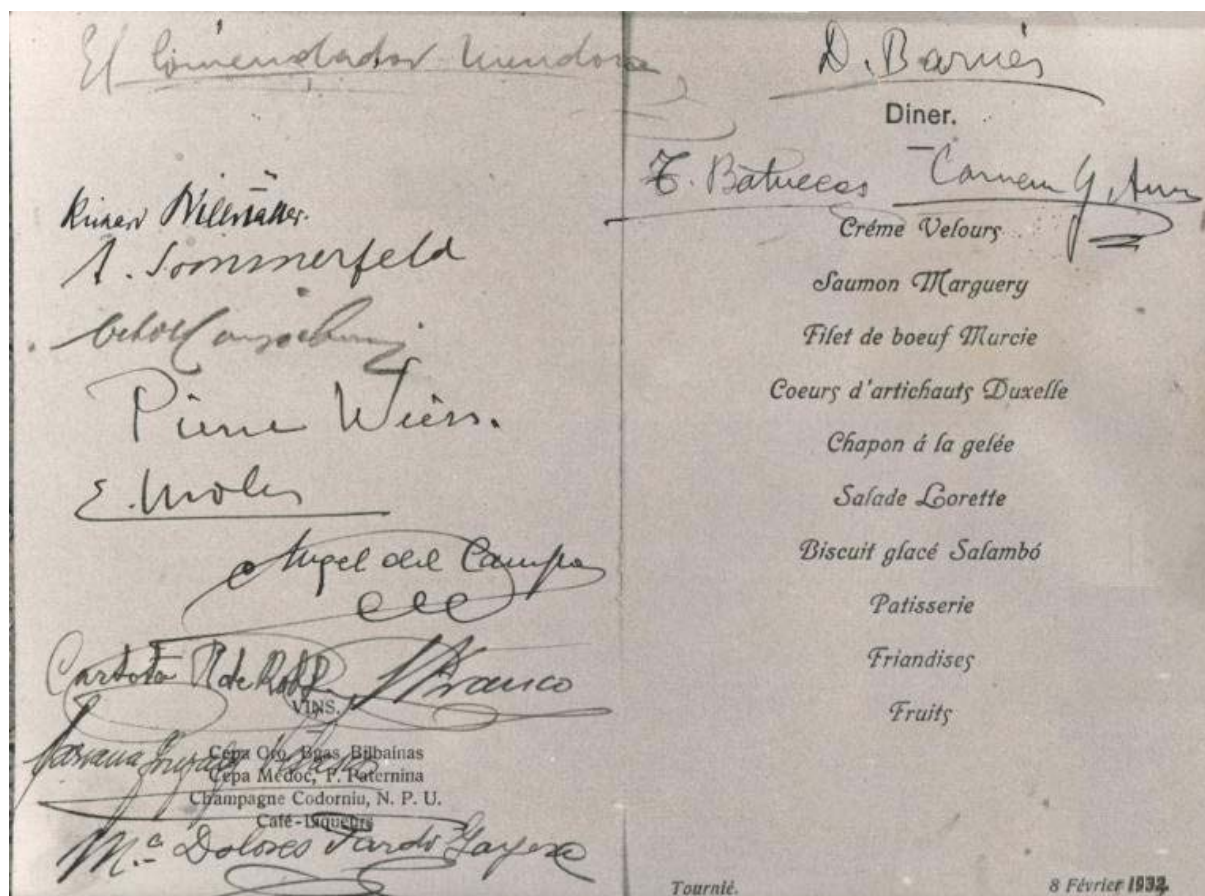 El Comendador Mendoza
Richard Willstätter.
A. Sommerfeld
Pierre Weiss.
E. Moles
Angel del Campo
Carlota R de
Franco
VINS.
Mariana González
Cepa Oro, Bgas Bilbaínas
Cepa Médoc, P. Paternina
Champagne Codorniu, N. P. U.
Café-Liqueurs
M.ª Dolores Pardo Gayoso
D. Barnés
Diner.
T. Batuecas
Carmen G.
Créme Velours
Saumon Marguery
Filet de boeuf Murcie
Coeurs d'artichauts Duxelle
Chapon á la gelée
Salade Lorette
Biscuit glacé Salambó
Patisserie
Friandises
Fruits
Tournié.
8 Février 1932